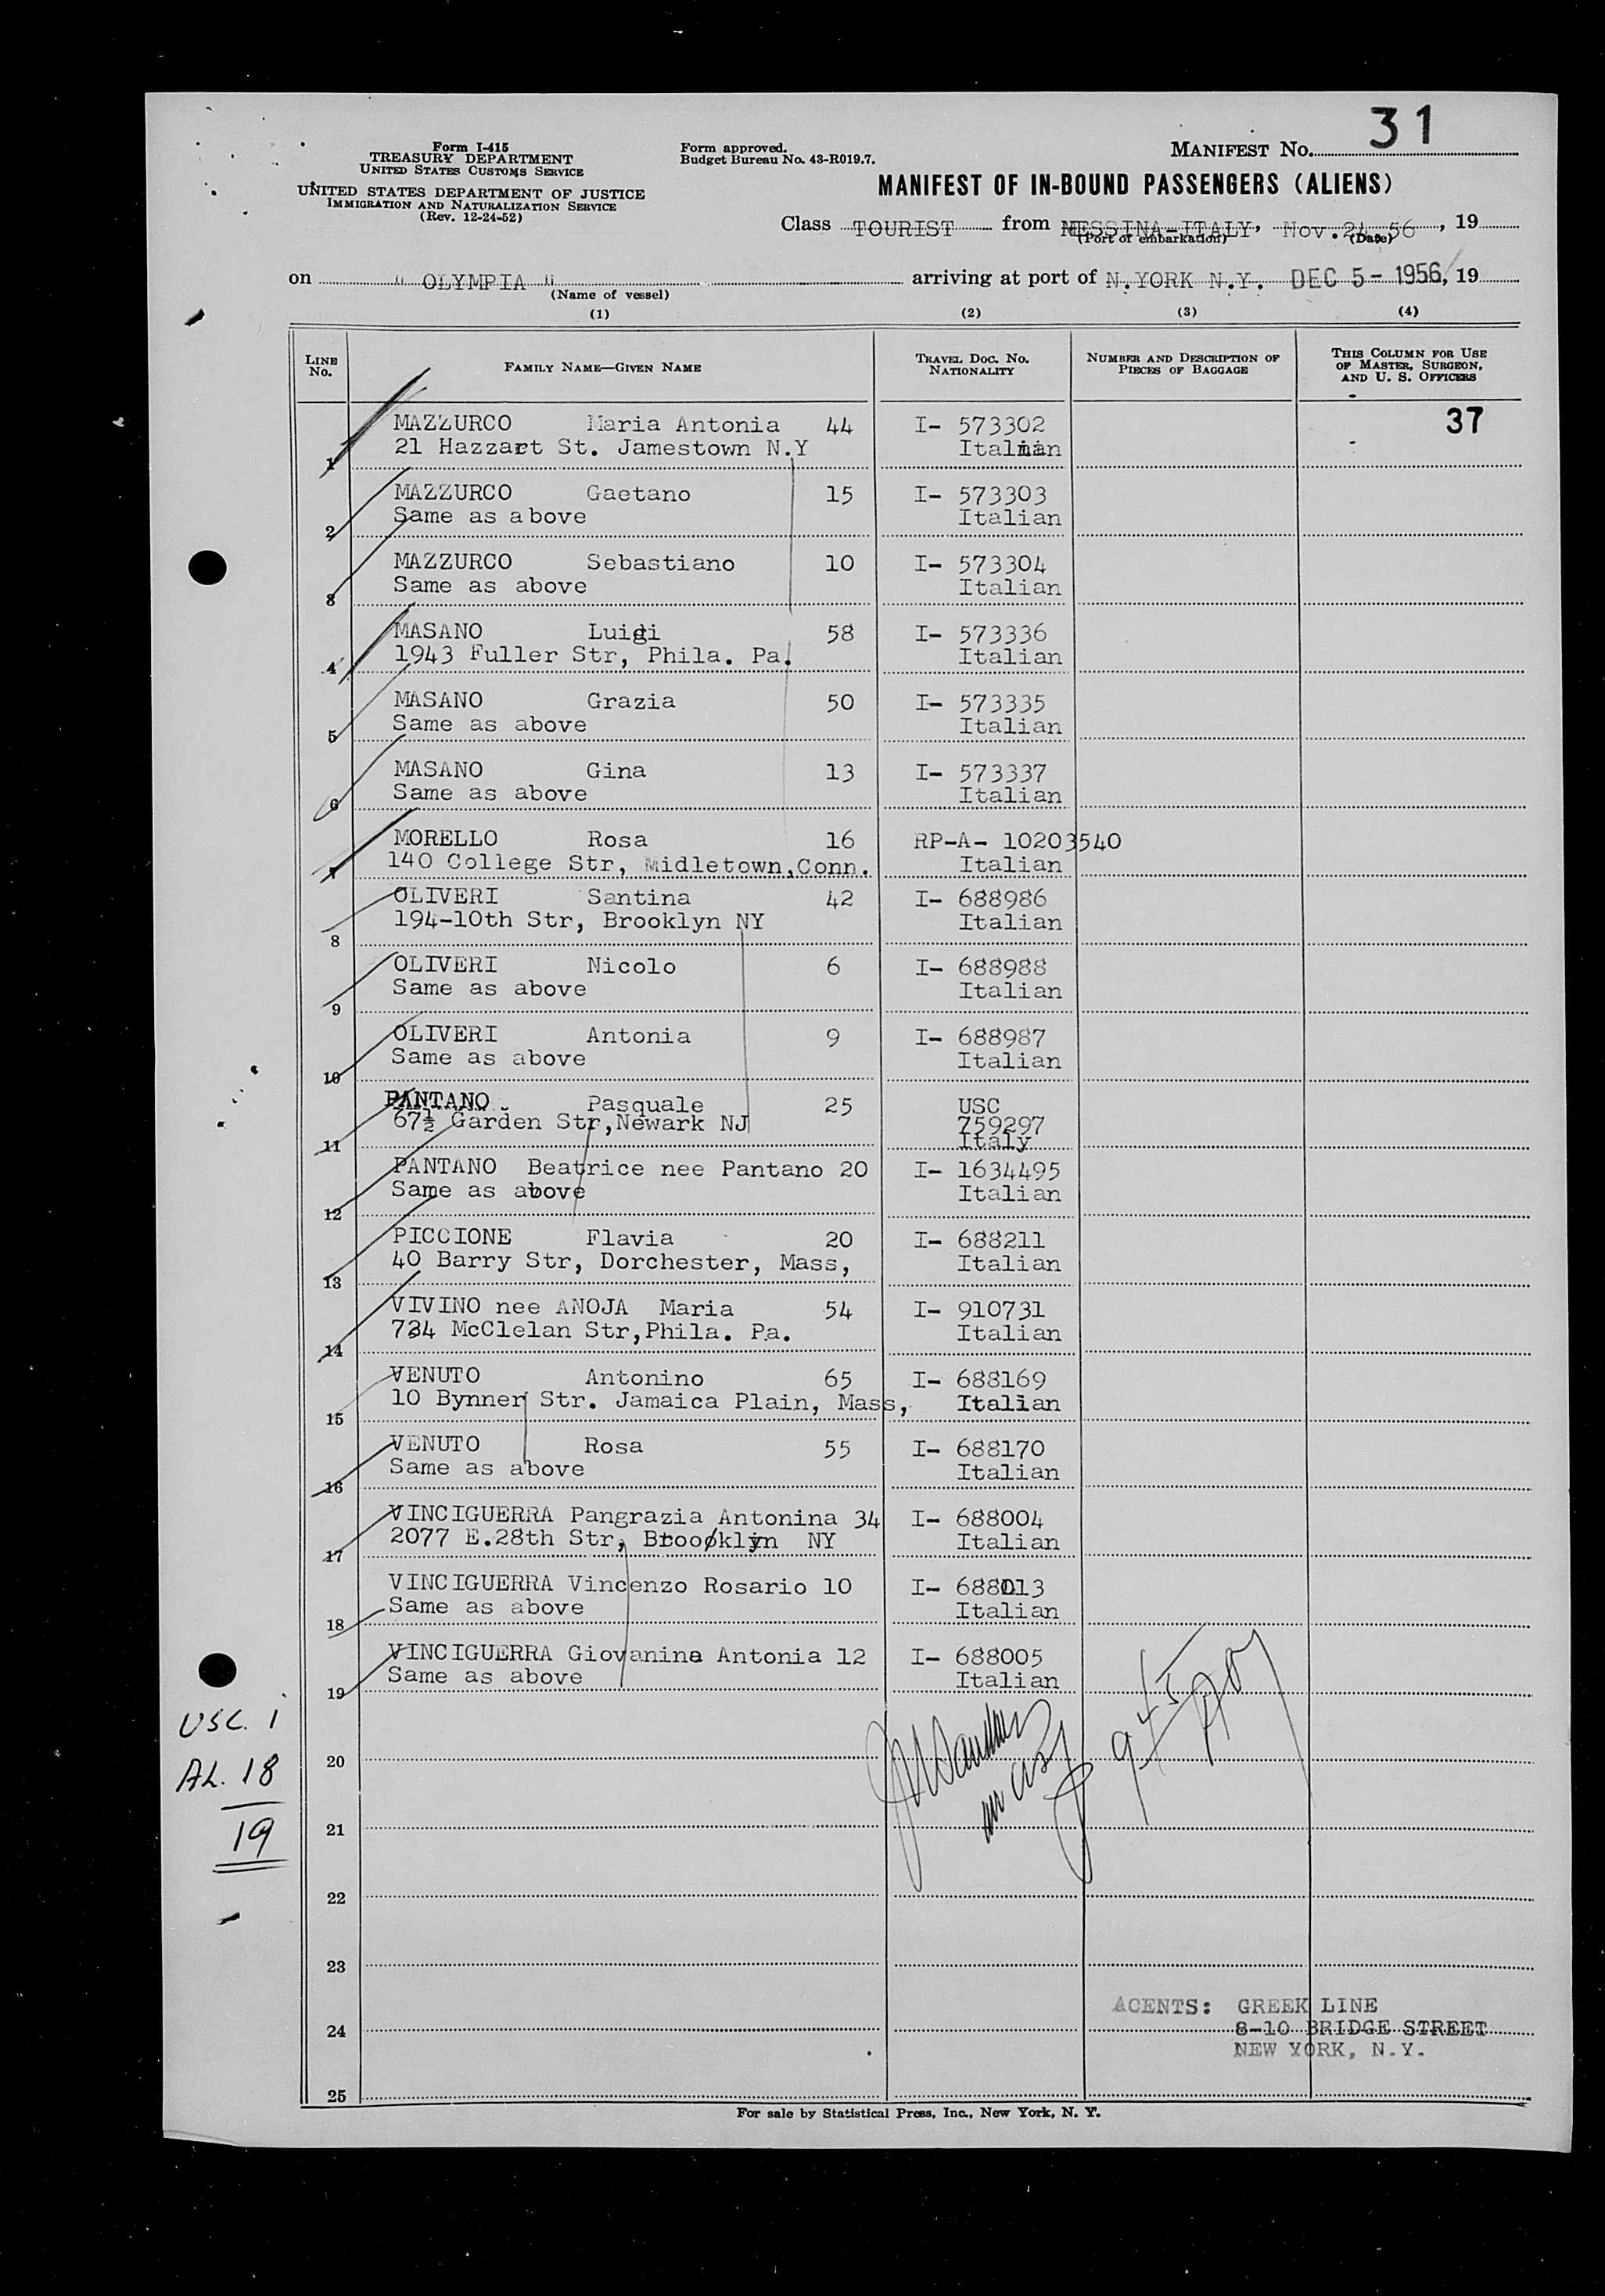 31
Form I-415
TREASURY DEPARTMENT
UNITED STATES CUSTOMS SERVICE
UNITED STATES DEPARTMENT OF JUSTICE
IMMIGRATION AND NATURALIZATION SERVICE
(Rev. 12-24-52)
Form approved.
Budget Bureau No. 43-R019.7.
MANIFEST No.
MANIFEST OF IN-BOUND PASSENGERS (ALIENS)
Class TOURIST from MESSINA-ITALY, Nov. 24 56, 19
(Port of embarkation) (Date)
on " OLYMPIA " arriving at port of N.YORK N.Y. DEC 5- 1956, 19
(Name of vessel)
(1) (2) (3) (4)
LINE No. FAMILY NAME—GIVEN NAME TRAVEL DOC. NO. NATIONALITY NUMBER AND DESCRIPTION OF PIECES OF BAGGAGE THIS COLUMN FOR USE OF MASTER, SURGEON, AND U. S. OFFICERS
MAZZURCO Maria Antonia 44 I- 573302 37
1 21 Hazzart St. Jamestown N.Y Italian
MAZZURCO Gaetano 15 I- 573303
2 Same as above Italian
MAZZURCO Sebastiano 10 I- 573304
3 Same as above Italian
MASANO Luigi 58 I- 573336
4 1943 Fuller Str, Phila. Pa. Italian
MASANO Grazia 50 I- 573335
5 Same as above Italian
MASANO Gina 13 I- 573337
6 Same as above Italian
MORELLO Rosa 16 RP-A- 10203540
7 140 College Str, Midletown,Conn. Italian
OLIVERI Santina 42 I- 688986
8 194-10th Str, Brooklyn NY Italian
OLIVERI Nicolo 6 I- 688988
9 Same as above Italian
OLIVERI Antonia 9 I- 688987
10 Same as above Italian
PANTANO Pasquale 25 USC
11 67½ Garden Str,Newark NJ 759297
Italy
PANTANO Beatrice nee Pantano 20 I- 1634495
12 Same as above Italian
PICCIONE Flavia 20 I- 688211
13 40 Barry Str, Dorchester, Mass, Italian
VIVINO nee ANOJA Maria 54 I- 910731
14 734 McClelan Str,Phila. Pa. Italian
VENUTO Antonino 65 I- 688169
15 10 Bynner Str. Jamaica Plain, Mass, Italian
VENUTO Rosa 55 I- 688170
16 Same as above Italian
VINCIGUERRA Pangrazia Antonina 34 I- 688004
17 2077 E.28th Str, Brooklyn NY Italian
VINCIGUERRA Vincenzo Rosario 10 I- 688013
18 Same as above Italian
VINCIGUERRA Giovanina Antonia 12 I- 688005
19 Same as above Italian
USC. 1
AL. 18
19
20
21
22
23
24
25
AGENTS: GREEK LINE
8-10 BRIDGE STREET
NEW YORK, N.Y.
For sale by Statistical Press, Inc., New York, N. Y.